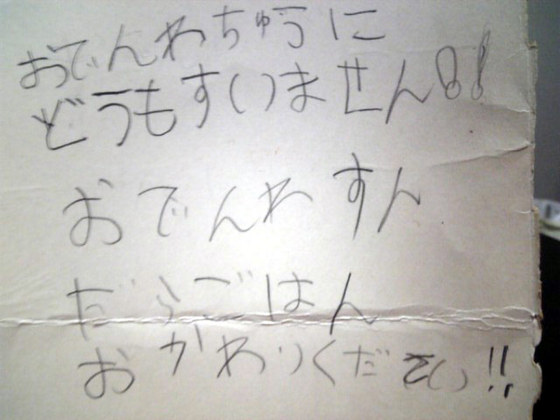 おでんわちゅうに
どうもすいません!!
おでんわすん
だらごはん
おかわりください!!